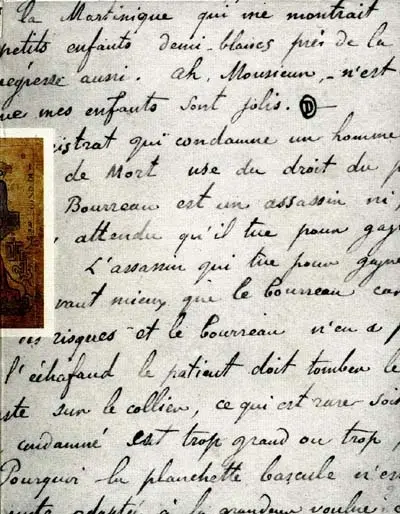 la Martinique qui me montrait
petits enfants demi-blancs près de la
négresse aussi. Ah, Monsieur, - n'est
que mes enfants sont jolis.
istrat qui condamne un homme
de Mort use du droit du
Bourreau est un assassin
, attendu qu'il tue pour
L'assassin qui tue pour
vaut mieux que le bourreau
risques - et le bourreau n'en a
l'échafaud le patient doit tomber
sur le collier, ce qui est rare
condamné est trop grand ou trop
Pourquoi la planchette bascule
adaptée à la grandeur